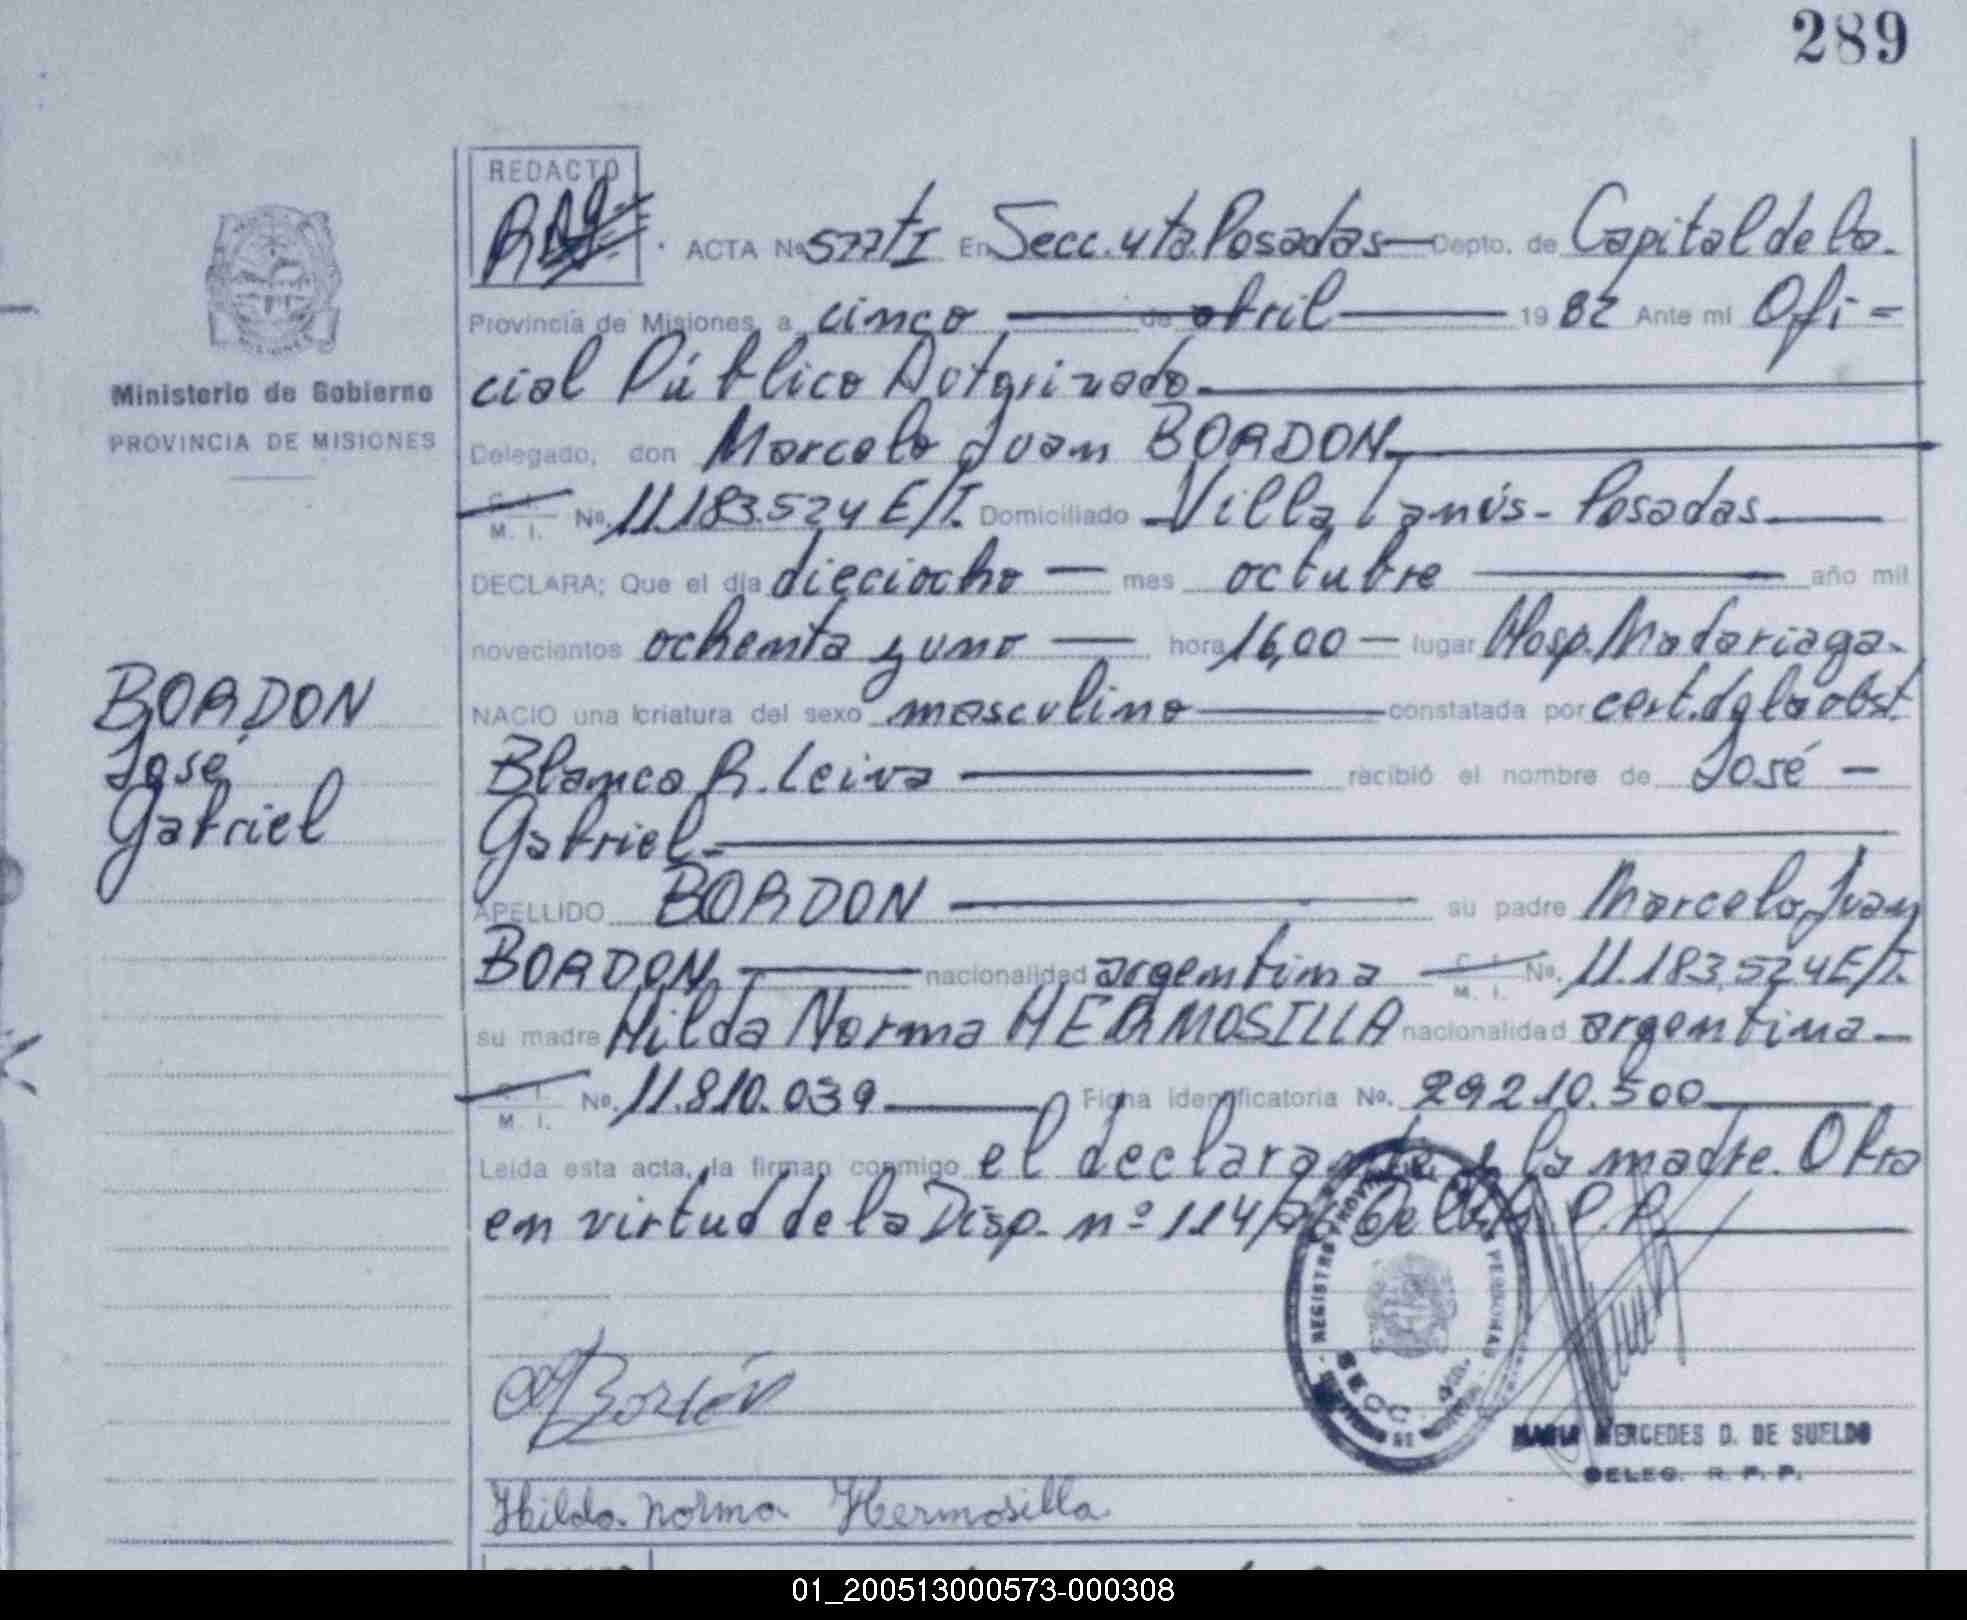 289
REDACTO
ACTA Nº 577/I En Secc. 4ta. Posadas Depto. de Capital de la
Provincia de Misiones, a cinco de abril 1982 Ante mi Ofi=
cial Público Autorizado
Delegado, don Marcelo Juan BORDON
C. I. M. I. No. 11.183.524 E/T. Domiciliado Villa Lanús - Posadas
DECLARA; Que el día dieciocho mes octubre año mil
novecientos ochenta y uno hora 16,00 lugar Hosp. Madariaga.
NACIO una criatura del sexo masculino constatada por cert. de la obst.
Blanca R. Leiva recibió el nombre de José
Gabriel
APELLIDO BORDON su padre Marcelo Juan
BORDON nacionalidad argentina C. I. M. I. No. 11.183.524 E/T.
su madre Hilda Norma HERMOSILLA nacionalidad argentina
C. I. M. I. No. 11.810.039 Ficha identificatoria No. 29210.500
Leída esta acta, la firman conmigo el declarante y la madre. Obra
en virtud de la Disp. nº 114/ R. P. P.
Ministerio de Gobierno
PROVINCIA DE MISIONES
BORDON
José
Gabriel
Bordón
Hilda Norma Hermosilla
REGISTRO PROVINCIAL PERSONAS
SECC. 4ta.
MARIA MERCEDES D. DE SUELDO
DELEG. R. P. P.
01_200513000573-000308